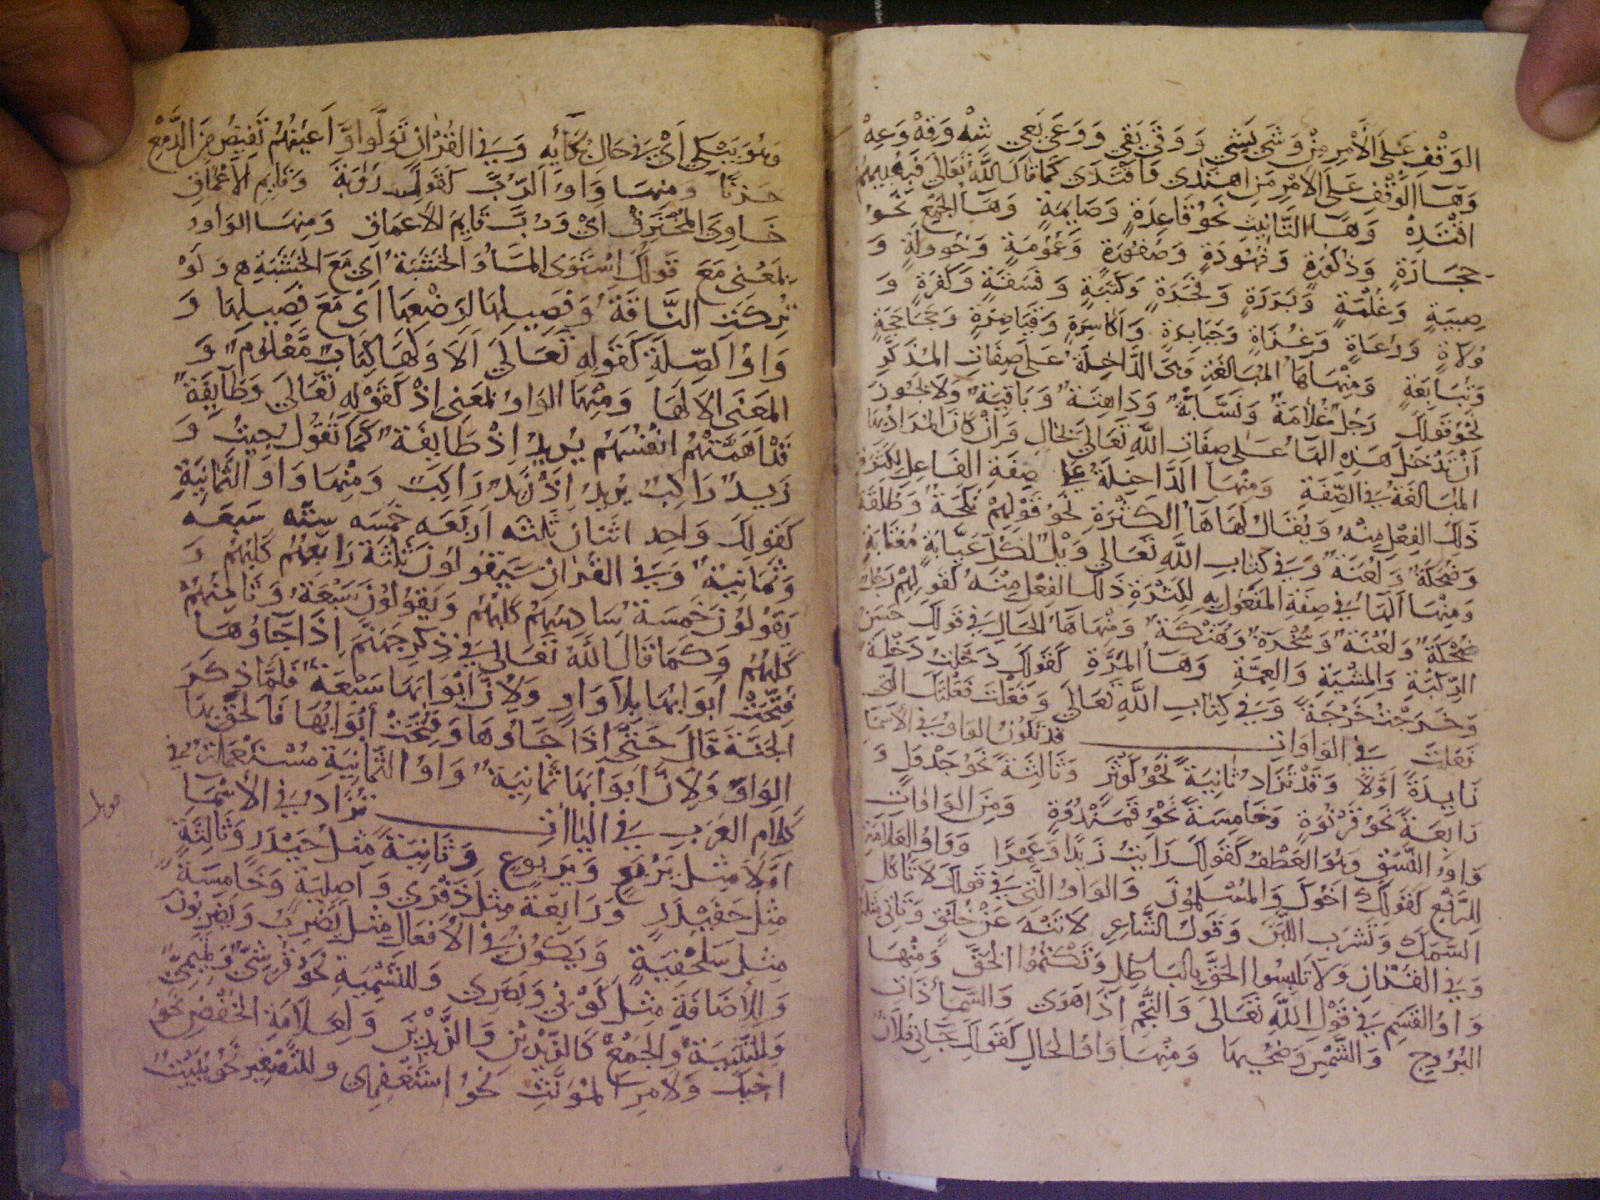 الوَقْفِ عَلَى الأَمْرِ مِنْ وَشَى يَشِي وَوَقَى يَقِي وَوَعَى يَعِي شِهْ وَقِهْ وَعِهْ
وَهَا الْوَقْفِ عَلَى الأَمْرِ مِنْ اهْتَدَى وَاقْتَدَى كَمَا قَالَ اللَّهُ تَعَالَى فَبِهُدَيهُمُ
اقْتَدِهْ وَهَا التَّانِيثِ نَحْوُ قَاعِدَةٍ وَصَايِمَةٍ وَهَا الْجَمْعِ نَحْوُ
حِجَارَةٍ وَذُكُورَةٍ وَفُهُودَةٍ وَصُقُورَةٍ وَعُمُومَةٍ وَخُوولَةٍ وَ
صِبِيَةٍ وَغِلْمَةٍ وَبَرَرَةٍ وَفَجَرَةٍ وَكَتَبَةٍ وَفَسَقَةٍ وَكَفَرَةٍ وَ
وُلَاةٍ وَرُعَاةٍ وَ وَجَبَابِرَةٍ وَاَكَاسِرَةٍ وَقَيَاصِرَةٍ وَجَحَاجِحَةٍ
وَتَبَابِعَةٍ وَمِنْهَا هَا الْمُبَالَغَةِ وَهِيَ الدَّاخِلَةُ عَلَى صِفَاتِ الْمُذَكَّرِ
نَحْوُ قَولِكَ رَجُلٌ عَلَّامَةٌ وَنَسَّابَةٌ وَدَاهِيَةٌ وَبَاقِعَةٌ وَلَا يَجُوزُ
اَنْ تَدْخُلَ هَذِهِ الْهَا عَلَى صِفَاتِ اللَّهِ تَعَالَى بِحَالٍ وَاِنْ كَانَ الْمُرَادُ بِهَا
الْمُبَالَغَةُ فِي الصِّفَةِ وَمِنْهَا الدَّاخِلَةُ عَلَى صِفَةِ الْفَاعِلِ لِكَثْرَةِ
ذَلِكَ الْفِعْلِ مِنْهُ وَيُقَالُ لَهَا هَا الْكَثْرَةِ نَحْوُ قَوْلِهِمْ نُكَحَةٌ وَطُلَقَةٌ
وَضُحَكَةٌ وَلُعَنَةٌ وَفِي كِتَابِ اللَّهِ تَعَالَى وَيْلٌ لِكُلِّ
وَمِنْهَا الْهَا فِي صِفَةِ الْمَفْعُولِ بِهِ لِكَثْرَةِ ذَلِكَ الْفِعْلِ مِنْهُ كَقَوْلِهِمْ رَجُلٌ
ضُحْكَةٌ وَلُعْنَةٌ وَسُخْرَةٌ وَهُتْكَةٌ وَمِنْهَا هَا الْحَالِ فِي قَولِكَ حَسَنُ
الرِّكْبَةِ وَالْمِشْيَةِ وَالْعِمَّةِ وَهَا الْمَرَّةِ كَقَولِكَ دَخَلْتُ دَخْلَةً
وَخَرَجْتُ خَرْجَةً وَفِي كِتَابِ اللَّهِ تَعَالَى وَفَعَلْتَ فَعْلَتَكَ الَّتِي
فَعَلْتَ فِي الْوَاوَاتِ قَدْ تَكُونُ الْوَاوُ فِي الْأَسْمَا
زَايِدَةً اَوَّلًا وَقَدْ تُزَادُ ثَانِيَةً نَحْوُ كَوْثَرٍ وَثَالِثَةً نَحْوُ جَدْوَلٍ وَ
رَابِعَةً نَحْوُ قَرْنُوَةٍ وَخَامِسَةً نَحْوُ قَمَحْدُوَةٍ وَمِنَ الْوَاوَاتِ
وَاوُ النَّسَقِ وَهُوَ الْعَطْفُ كَقَولِكَ رَايْتُ زَيْدًا وَعَمْرًا وَوَاوُ الْعَلَامَةِ
لِلرَّفْعِ كَقَولِكَ اخُوكَ وَالْمُسْلِمُونَ وَالْوَاوُ الَّتِي فِي قَولِكَ لَا تَاكُلِ
السَّمَكَ وَتَشْرَبَ اللَّبَنَ وَقَولِ الشَّاعِرِ لَا تَنْهَ عَنْ خُلُقٍ وَتَاتِيَ مِثْلَهُ
وَفِي الْقُرْانِ وَلَا تَلْبِسُوا الْحَقَّ بِالْبَاطِلِ وَتَكْتُمُوا الْحَقَّ وَمِنْهَا
وَاوُ الْقَسَمِ فِي قَوْلِ اللَّهِ تَعَالَى وَالنَّجْمِ اذَا هَوَى وَالسَّمَاءِ ذَاتِ
الْبُرُوجِ وَالشَّمْسِ وَضُحَيهَا وَمِنْهَا وَاوُ الْحَالِ كَقَولِكَ جَانِي فُلَانٌ
وَهُوَ يَبْكِي اَيْ فِي حَالِ بُكَائِهِ وَفِي الْقُرْانِ تَوَلَّوا وَّاَعْيُنُهُمْ تَفِيضُ مِنَ الدَّمْعِ
حَزَنًا وَمِنْهَا وَاوُ الرُّبَّ كَقَولِ رُوبَةَ وَقَاتِمِ الْأَعْمَاقِ
خَاوِي الْمُخْتَرَقِ اَيْ وَرُبَّ قَاتِمِ الْأَعْمَاقِ وَمِنْهَا الْوَاوُ
بِمَعْنَى مَعَ قَولِكَ اسْتَوَى الْمَاءُ وَالْخَشَبَةَ اَيْ مَعَ الْخَشَبَةِ وَلَوْ
تُرِكَتِ النَّاقَةُ وَفَصِيلَهَا لَرَضِعَهَا اَيْ مَعَ فَصِيلِهَا وَ
وَاوُ الصِّلَةِ كَقَولِهِ تَعَالَى اَلَا وَلَهَا كِتَابٌ مَّعْلُومٌ وَ
الْمَعْنَى الَّا لَهَا وَمِنْهَا الْوَاوُ بِمَعْنَى اذْ كَقَوْلِهِ تَعَالَى وَطَايِفَةٌ
قَدْ اَهَمَّتْهُمْ انْفُسُهُمْ يُرِيدُ اِذْ طَايِفَةٌ كَمَا تَقُولُ جِيتُ وَ
زَيدٌ رَاكِبٌ يُرِيدُ اِذْ زَيدٌ رَاكِبٌ وَمِنْهَا وَاوُ الثَّمَانِيَةِ
كَقَولِكَ وَاحِد اثْنَان ثَلثَه اَرْبَعَه خَمْسَه سِتَّه سَبعَه
وَثَمَانِيَةٌ وَفِي الْقُرْانِ سَيَقُولُونَ ثَلثَةٌ رَابِعُهُمْ كَلْبُهُمْ وَ
يَقُولُونَ خَمْسَةٌ سَادِسُهُمْ كَلْبُهُمْ وَيَقُولُونَ سَبْعَةٌ وَثَامِنُهُمْ
كَلْبُهُمْ وَكَمَا قَالَ اللَّهُ تَعَالَى فِي ذِكْرِ جَهَنَّمَ اِذَا جَاوُهَا
فُتِحَتْ اَبْوَابُهَا بِلَا وَاوٍ وَلِأَنَّ ابْوَابَهَا سَبْعَةٌ فَلَمَّا ذَكَرَ
الْجَنَّةَ قَالَ حَتَّى اِذَا جَاوُهَا وَفُتِحَتْ اَبْوَابُهَا فَاَلْحَقَ بِهَا
الْوَاوَ وَلِأَنَّ ابْوَابَهَا ثَمَانِيَةٌ وَاوُ الثَّمَانِيَةِ مُسْتَعْمَلَةٌ فِي
كَلَامِ الْعَرَبِ فِي الْيَااتِ تُزَادُ فِي الْأَسْمَا
اَوَّلًا مِثْلَ يَرْمَعٍ وَيَرْبُوعٍ وَثَانِيَةً مِثْلَ حَيْدَرٍ وَثَالِثَةً
مِثْلَ خَفَيْدَدٍ وَرَابِعَةً مِثْلَ وَاصْلِيَةٍ وَخَامِسَةً
مِثْلَ سُلَحْفِيَةٍ وَيَكُونُ فِي الْأَفْعَالِ مِثْلَ يَضْرِبُ وَيَضْرِبُونَ
وَلِلْأِضَافَةِ مِثْلَ ثَوْبِي وَبَصَرِي وَلِلنِّسْبَةِ نَحْوُ قُرَشِيٍّ وَتَمِيمِيٍّ
وَلِلتَّثْنِيَةِ وَالْجَمْعِ كَالزَّيْدَيْنِ وَالزَّيْدِينَ وَلِعَلَامَةِ الْخَفْضِ نَحْوُ
اخِيكَ وَلِأَمْرِ الْمُؤَنَّثِ نَحْوُ اسْتَغْفِرِي وَلِلتَّصْغِيرِ نَحْوُ بُيَيْتٍ